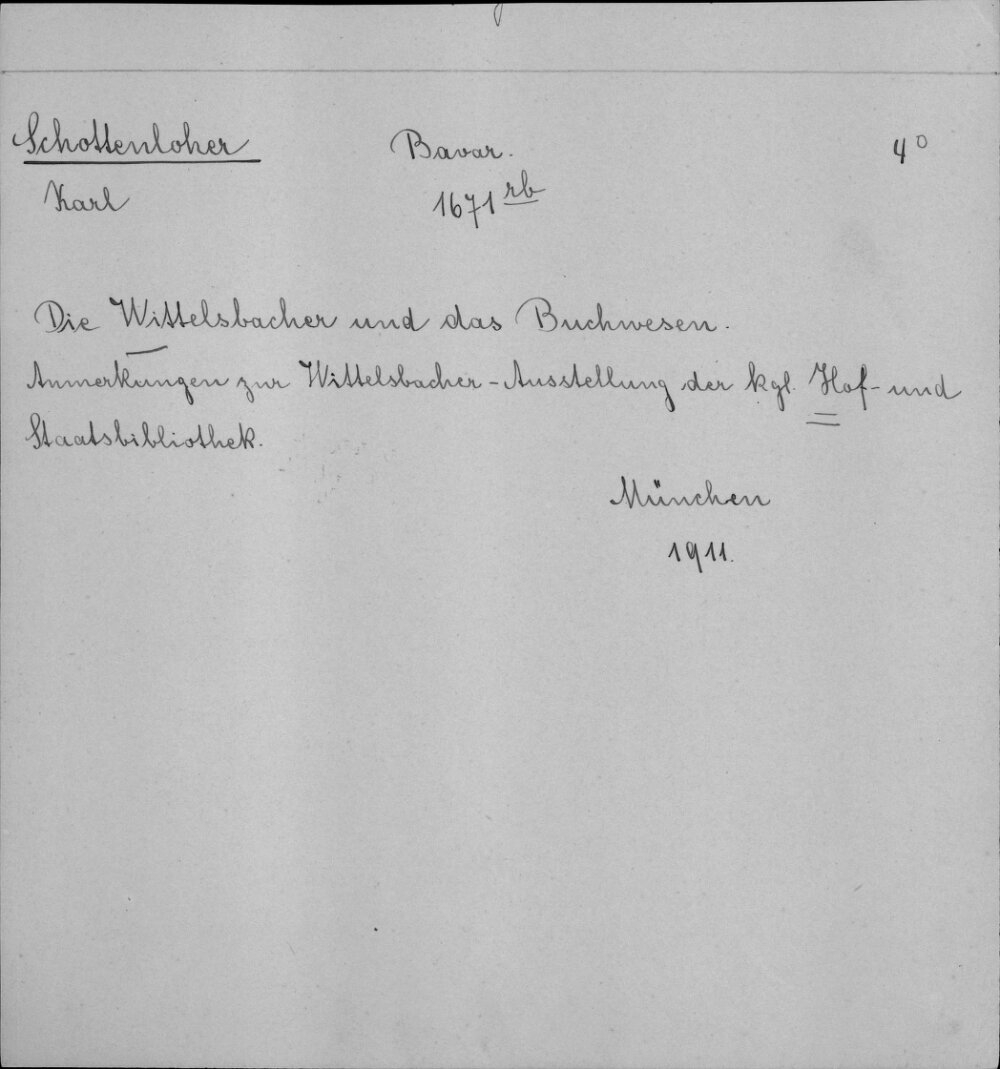 Schottenloher Bavar. 4°
Karl 1671 rb
Die Wittelsbacher und das Buchwesen.
Anmerkungen zur Wittelsbacher-Ausstellung der kgl. Hof- und
Staatsbibliothek.
München
1911.